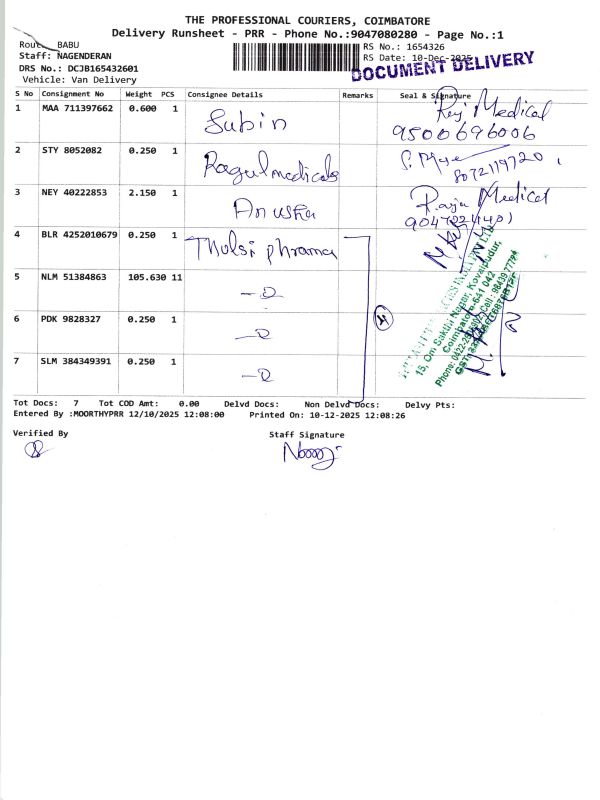 THE PROFESSIONAL COURIERS, COIMBATORE
Delivery Runsheet - PRR - Phone No.:9047080280 - Page No.:1
BABU
RS No.: 1654326
Staff: NAGENDERAN
RS Date: 10-Dec-2025
DOCUMENT DELIVERY
DRS No.: DCJB165432601
Vehicle: Van Delivery
S No Consignment No Weight PCS Consignee Details Remarks Seal & Signature
1 MAA 711397662 0.600 1 Subin Medical
9500696006
2 STY 8052082 0.250 1 Ragulmedicals
8072119720
3 NEY 40222853 2.150 1 Anusha Medical
4 BLR 4252010679 0.250 1 Thulsi phrama
5 NLM 51384863 105.630 11
6 PDK 9828327 0.250 1
7 SLM 384349391 0.250 1
4
15, Om Sakthi Nagar, Kovaipudur,
Coimbatore-641 042
Tot Docs: 7 Tot COD Amt: 0.00 Delvd Docs: Non Delvd Docs: Delvy Pts:
Entered By :MOORTHYPRR 12/10/2025 12:08:00 Printed On: 10-12-2025 12:08:26
Verified By Staff Signature